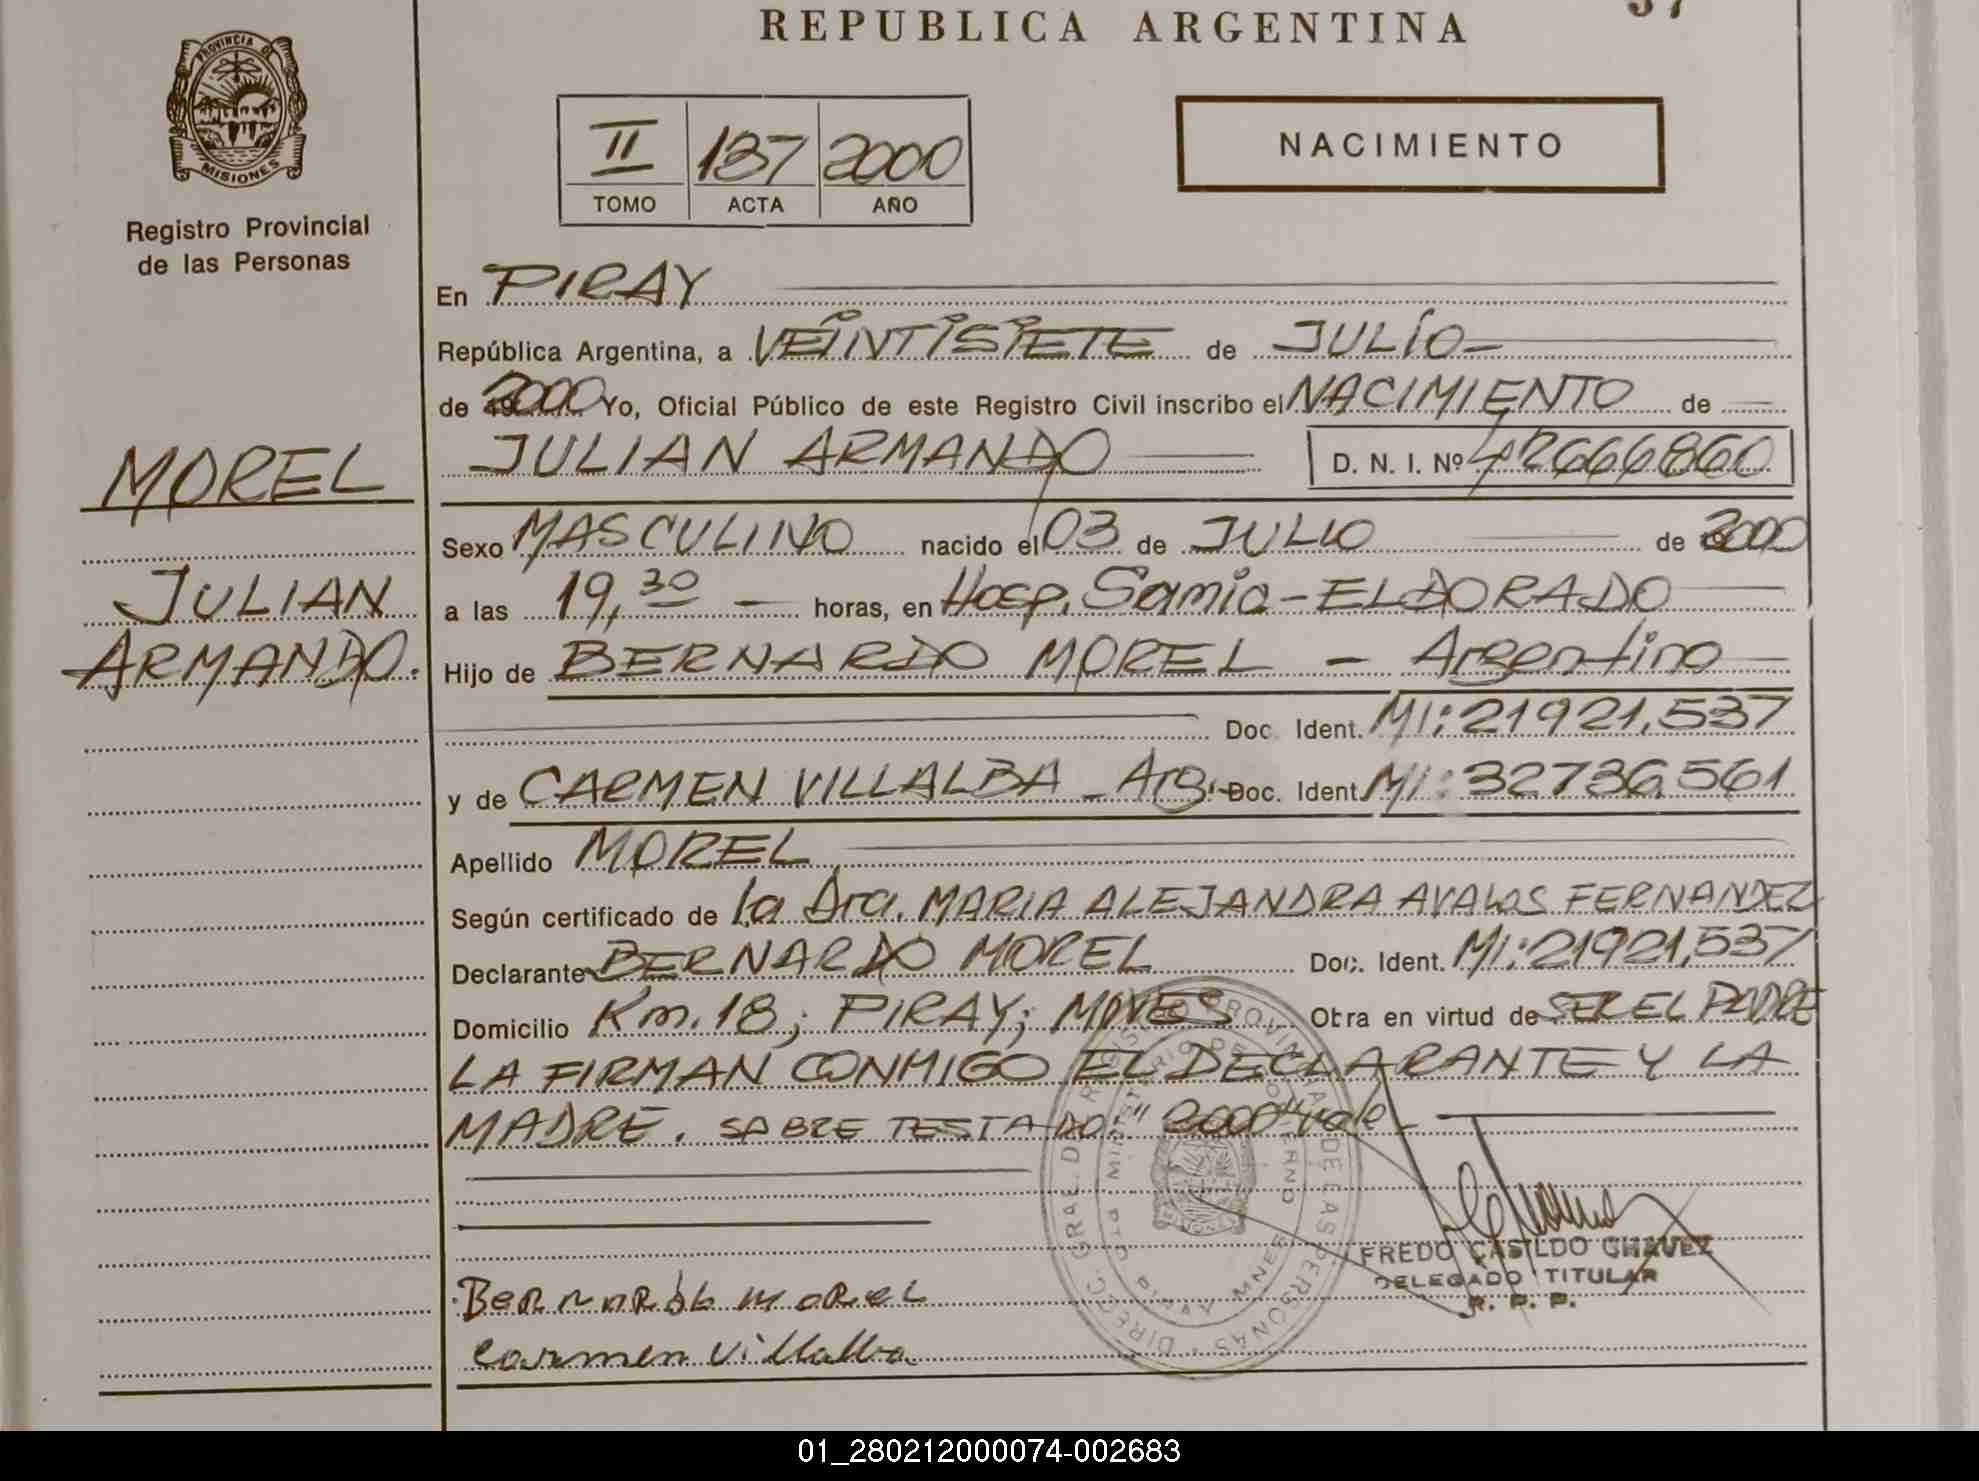 REPUBLICA ARGENTINA
PROVINCIA DE
MISIONES
Registro Provincial
de las Personas
II 137 2000
TOMO ACTA AÑO
NACIMIENTO
En PIRAY
República Argentina, a VEINTISIETE de JULIO
de 2000 Yo, Oficial Público de este Registro Civil inscribo el NACIMIENTO de
MOREL
JULIAN ARMANDO D. N. I. Nº 42666860
Sexo MASCULINO nacido el 03 de JULIO de 2000
JULIAN
a las 19,30 horas, en Hosp. Samic - ELDORADO
ARMANDO.
Hijo de BERNARDO MOREL - Argentino
Doc. Ident. MI: 21921,537
y de CARMEN VILLALBA - Arg. Doc. Ident. MI: 32736,561
Apellido MOREL
Según certificado de la Dra. MARIA ALEJANDRA AVALOS FERNANDEZ
Declarante BERNARDO MOREL Doc. Ident. MI: 21921,537
Domicilio Km. 18; PIRAY; MNES Obra en virtud de SER EL PADRE
LA FIRMAN CONMIGO EL DECLARANTE Y LA
MADRE. SOBRE TESTADO "2000" vale
FREDO CASILDO CHAVEZ
DELEGADO TITULAR
R. P. P.
Bernardo morel
Carmen Villalba
01_280212000074-002683